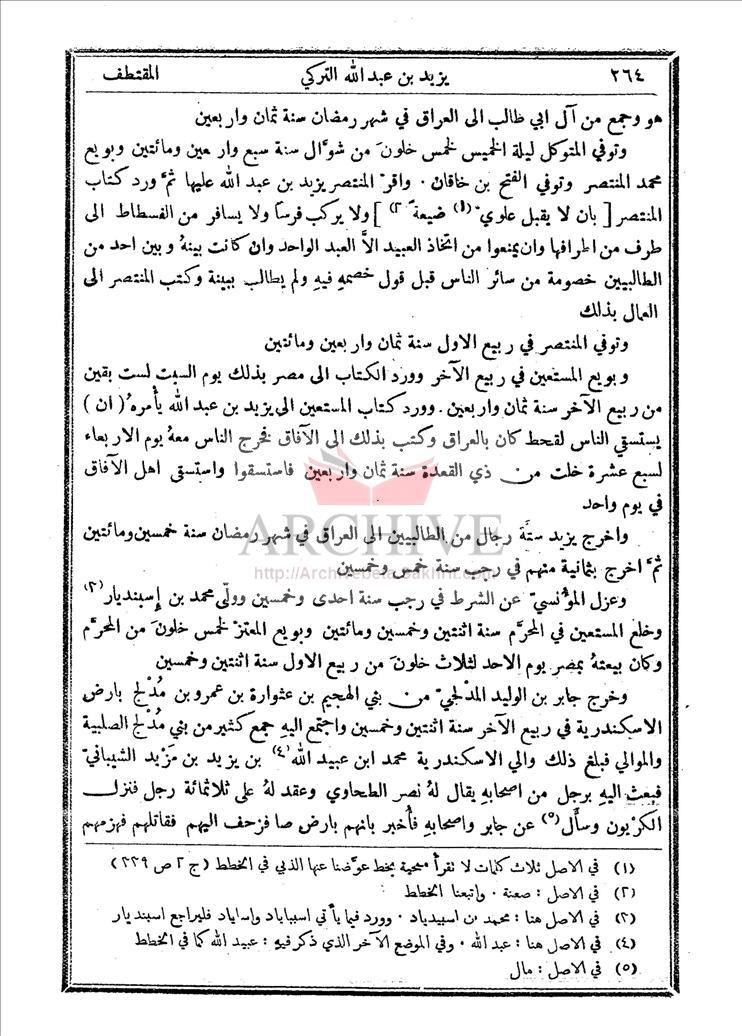 ٢٦٤ يزيد بن عبد الله التركي المقتطف
هو وجمع من آل ابي طالب الى العراق في شهر رمضان سنة ثمان واربعين
وتوفي المتوكل ليلة الخميس لخمس خلونَ من شوَّال سنة سبع واربعين ومائتين وبويع
محمد المنتصر وتوفي الفتح بن خاقان . واقرَّ المنتصر يزيد بن عبد الله عليها ثمَّ ورد كتاب
المنتصر [ بان لا يقبل علويّ (١) ضيعةً (٢) ] ولا يركب فرساً ولا يسافر من الفسطاط الى
طرف من اطرافها وان يمنعوا من اتخاذ العبيد الاَّ العبد الواحد وان كانت بينهُ وبين احد من
الطالبيين خصومة من سائر الناس قبل قول خصمهِ فيهِ ولم يطالب ببينة وكتب المنتصر الى
العمال بذلك
وتوفي المنتصر في ربيع الاول سنة ثمان واربعين ومائتين
وبويع المستعين في ربيع الآخر وورد الكتاب الى مصر بذلك يوم السبت لست بقين
من ربيع الآخر سنة ثمان واربعين . وورد كتاب المستعين الى يزيد بن عبد الله يأمرهُ ( ان )
يستسقي الناس لقحط كان بالعراق وكتب بذلك الى الآفاق فخرج الناس معهُ يوم الاربعاء
لسبع عشرة خلت من ذي القعدة سنة ثمان واربعين فاستسقوا واستسقى اهل الآفاق
في يوم واحد
واخرج يزيد ستَّة رجال من الطالبيين الى العراق في شهر رمضان سنة خمسين ومائتين
ثمَّ اخرج بثمانية منهم في رجب سنة خمس وخمسين
وعزل المؤنسيّ عن الشرط في رجب سنة احدى وخمسين وولّى محمد بن إسبنديار (٣)
وخلع المستعين في المحرَّم سنة اثنتين وخمسين ومائتين وبويع المعتز لخمس خلونَ من المحرَّم
وكان بيعتهُ بمصر يوم الاحد لثلاث خلونَ من ربيع الاول سنة اثنتين وخمسين
وخرج جابر بن الوليد المدلجيّ من بني الهجيم بن عثوارة بن عمرو بن مُدْلج بارض
الاسكندرية في ربيع الآخر سنة اثنتين وخمسين واجتمع اليهِ جمع كثير من بني مُدلج الصلبية
والموالي فبلغ ذلك والي الاسكندرية محمد ابن عبيد الله (٤) بن يزيد بن مَزْيد الشيبانيّ
فبعث اليهِ برجل من اصحابهِ يقال لهُ نصر الطحاوي وعقد لهُ على ثلاثمائة رجل فنزل
الكَرْيون وسأَل (٥) عن جابر واصحابهِ فأُخبر بانهم بارض صا فزحف اليهم فقاتلهم فهزمهم
(١) في الاصل ثلاث كلمات لا تقرأ ممحية بخط عوَّضنا عنها الذي في الخطط ( ج ٢ ص ٣٣٩ )
(٢) في الاصل : صعنة . واتبعنا الخطط
(٣) في الاصل هنا : محمد بن اسبيدباد . وورد فيما يأتي اسبباباد واساباد فليراجع اسبنديار
(٤) في الاصل هنا : عبد الله . وفي الموضع الآخر الذي ذكر فيهِ : عبيد الله كما في الخطط
(٥) في الاصل : مال
ARCHIVE